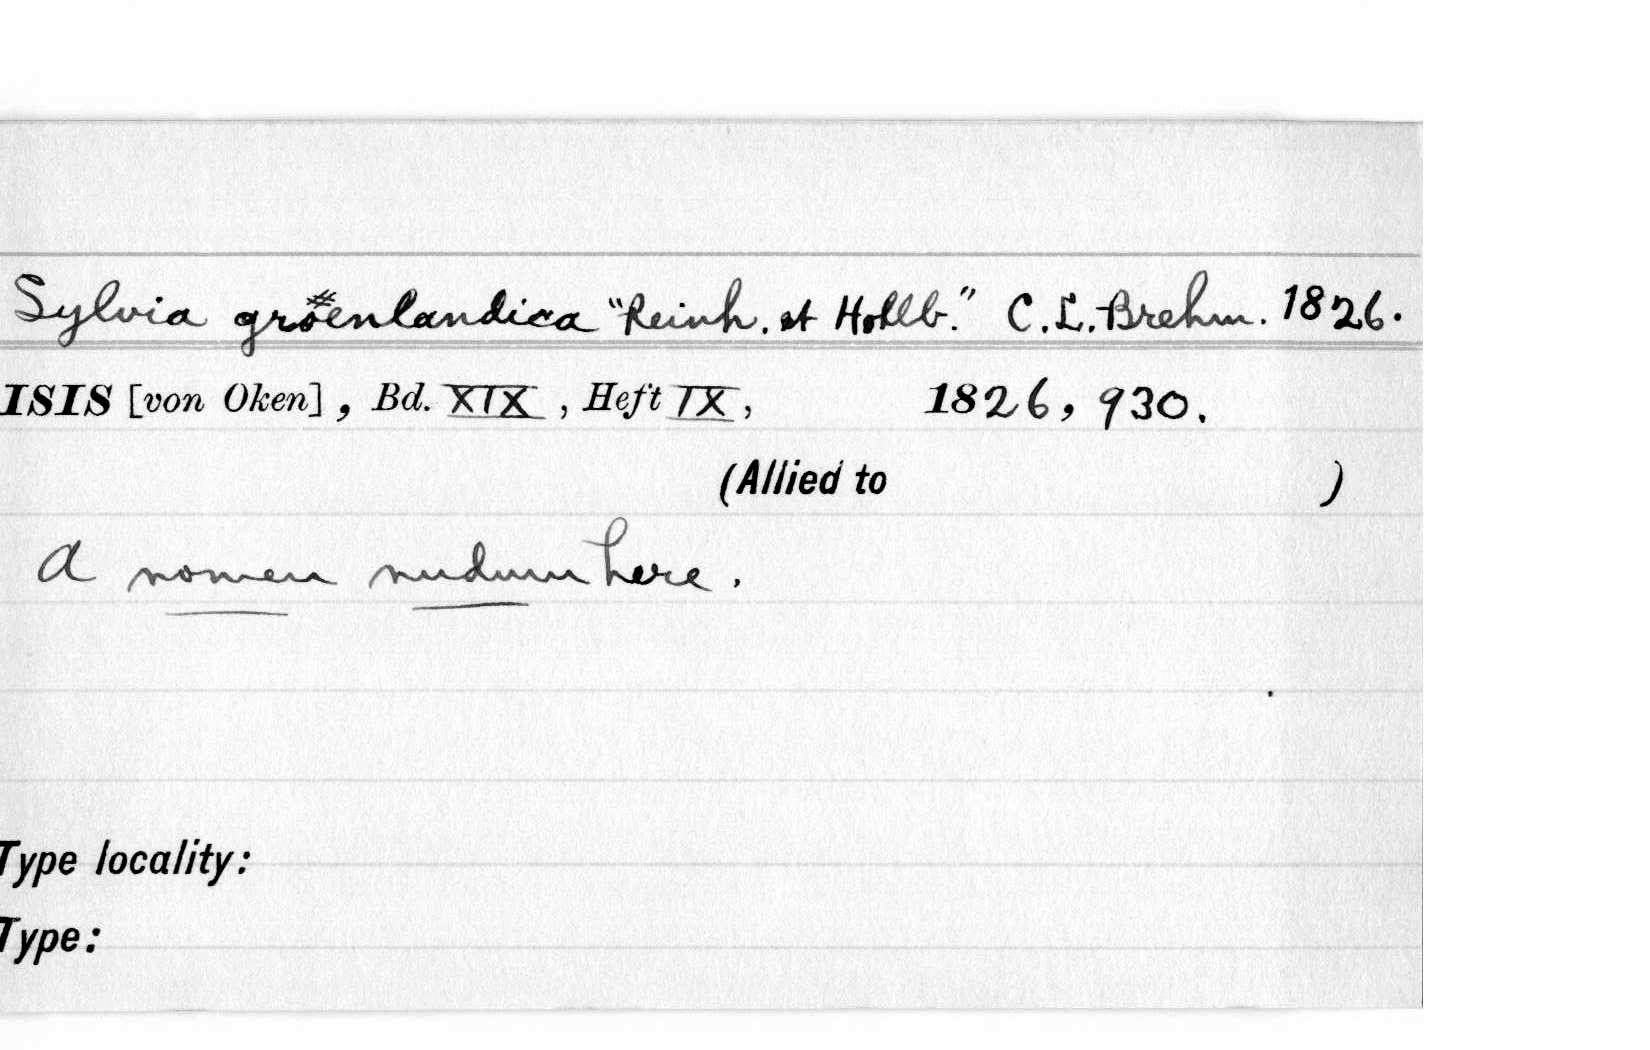 Sylvia groenlandica "Reinh. et Hollb." C.L.Brehm. 1826.
ISIS [von Oken], Bd. XIX, Heft IX, 1826, 930.
(Allied to )
A nomen nudum here.
Type locality:
Type: